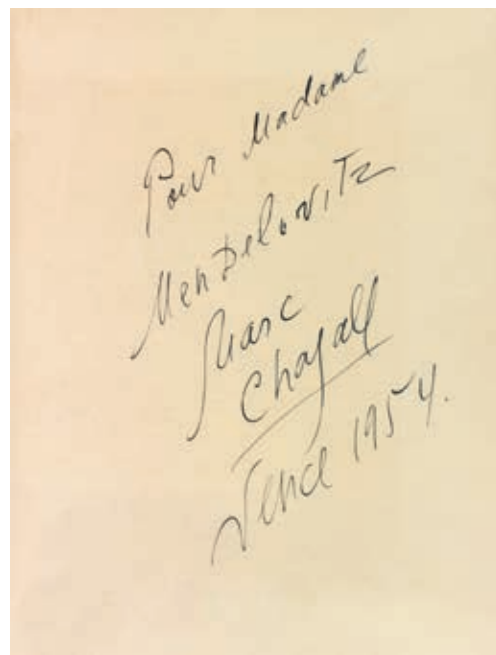 Pour Madame
Mendelovitz
Marc
Chagall
Vence 1954.